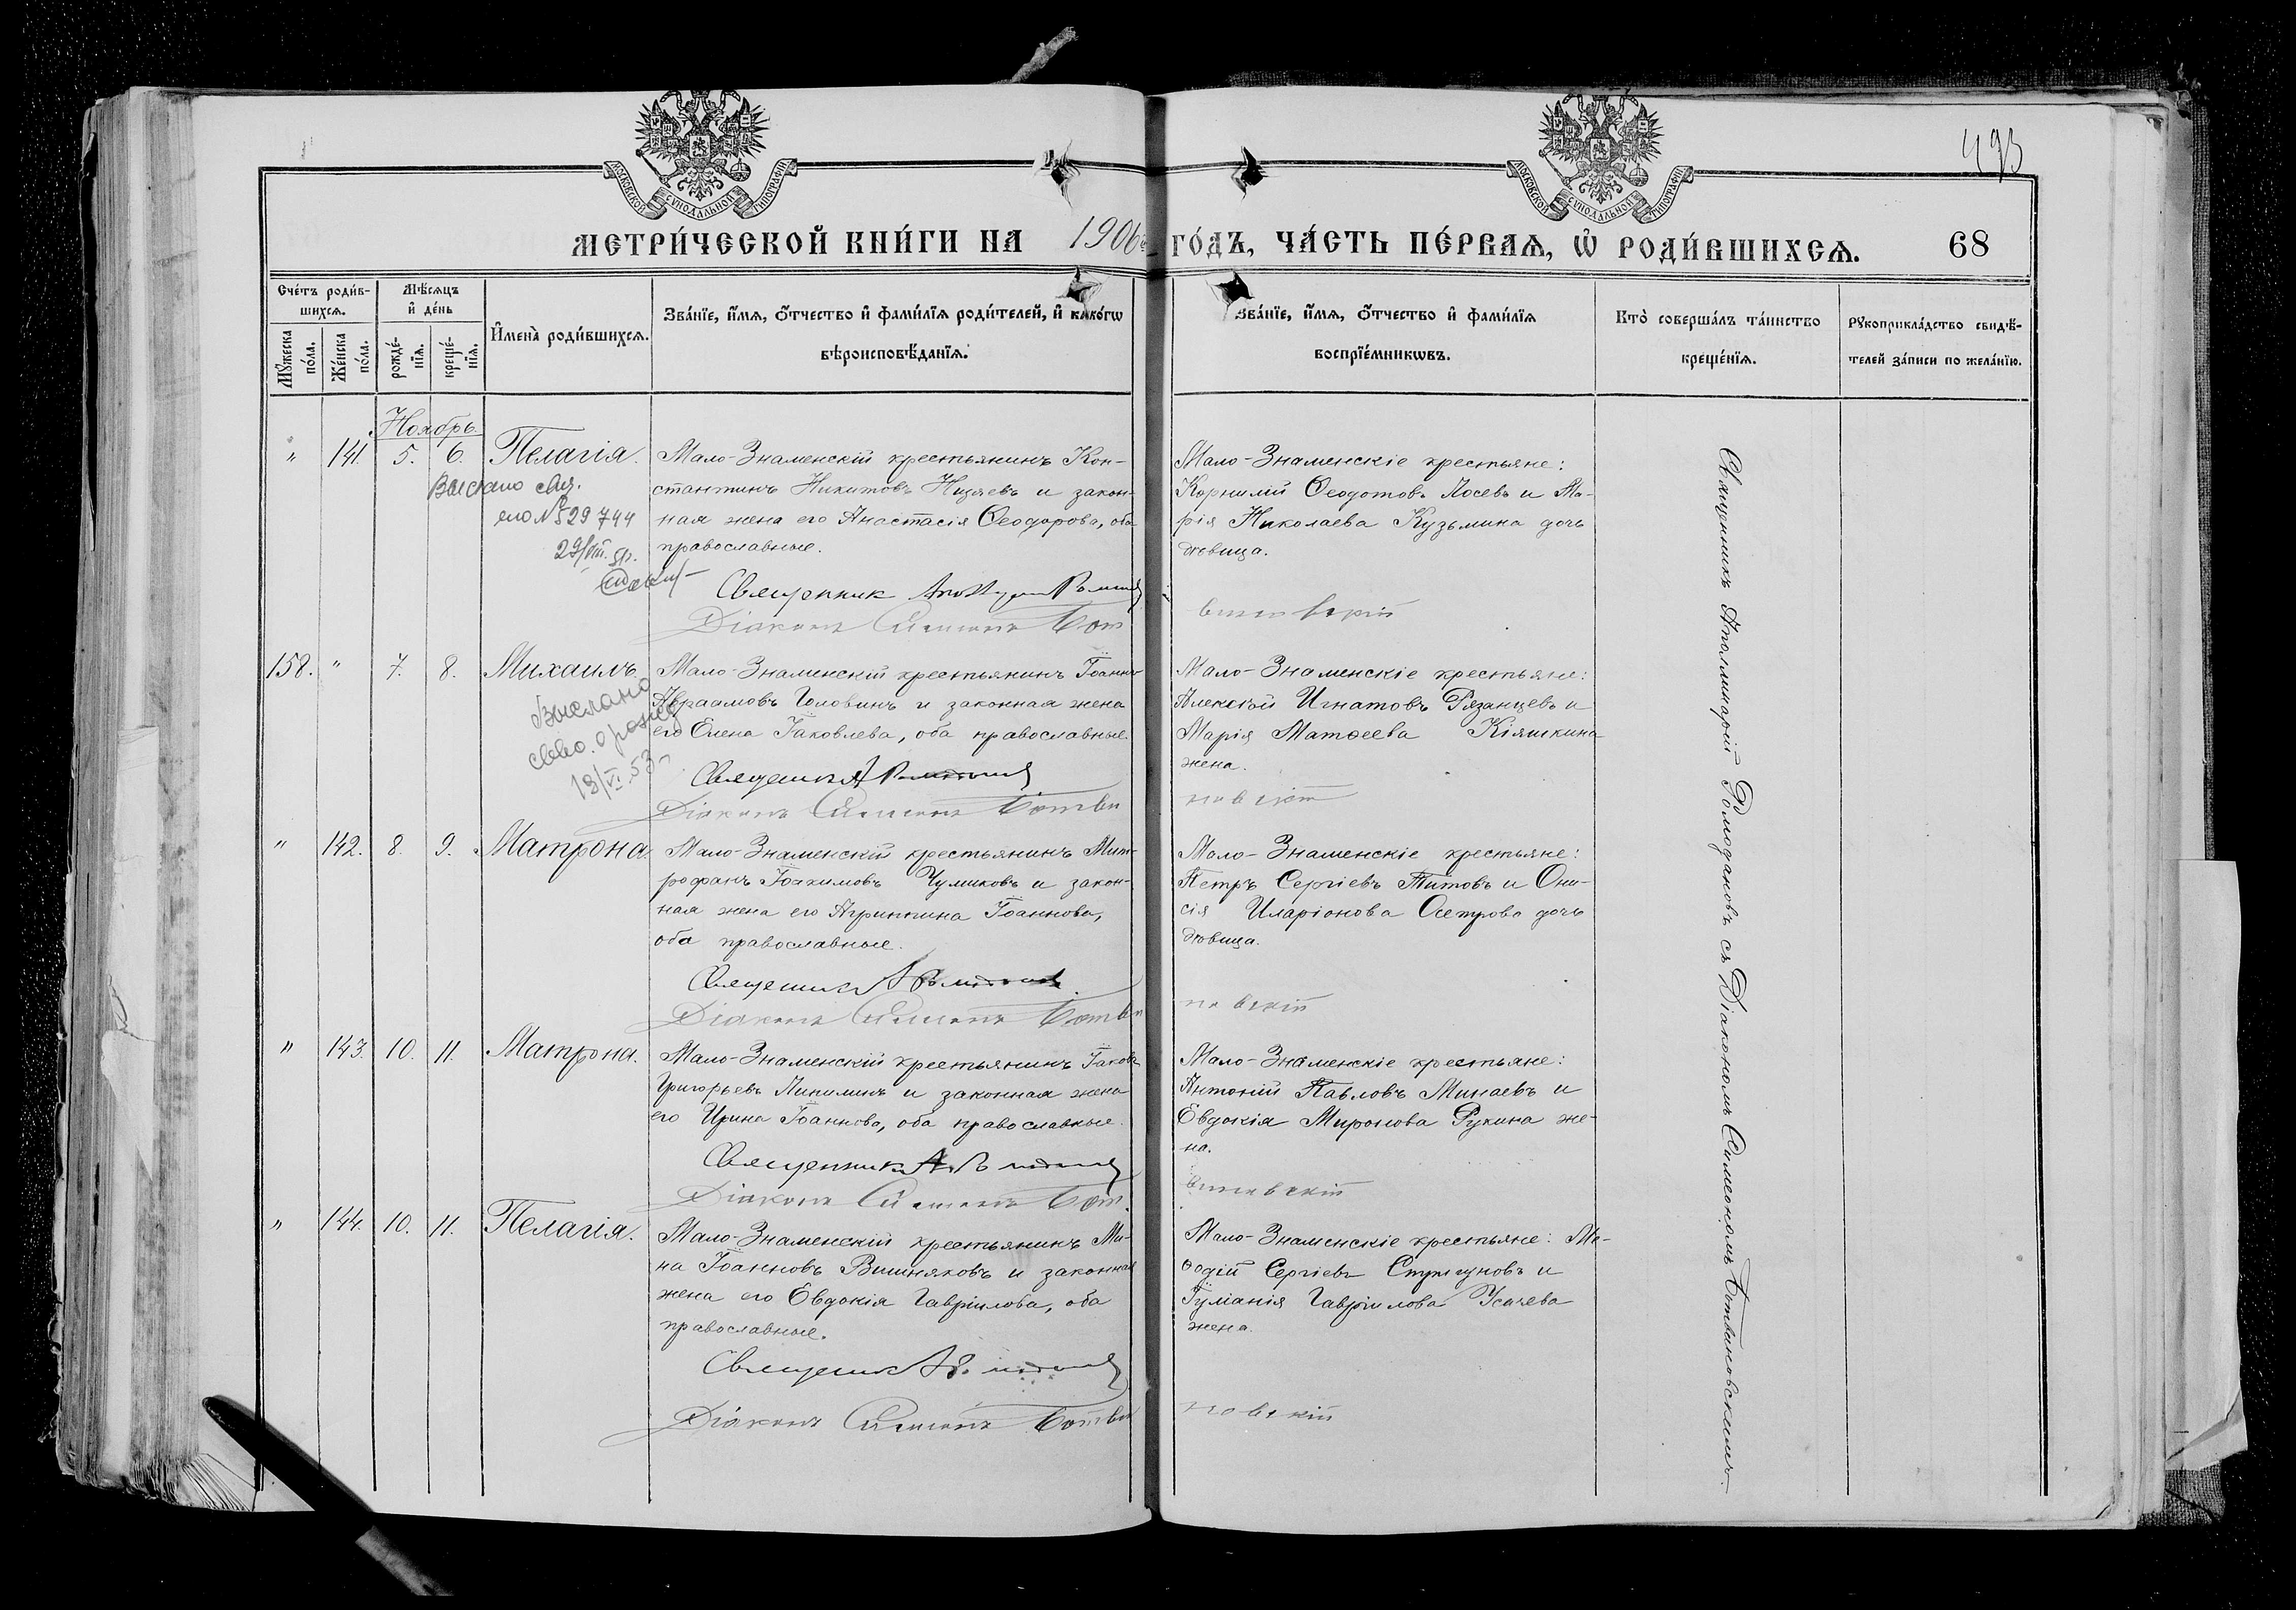 МОСКОВСКОЙ СѴНОДАЛЬНОЙ ТИПОГРАФІИ
МОСКОВСКОЙ СѴНОДАЛЬНОЙ ТИПОГРАФІИ
493
МЕТРИ́ЧЕСКОЙ КНИ́ГИ НА 1906 ГО́ДЪ, ЧА́СТЬ ПЕ́РВАѦ, Ѡ҆ РОДИ́ВШИХСѦ. 68
Сче́тъ роди́в-
шихсѧ.
Мꙋ́жеска по́ла.
Же́нска по́ла.
Мѣ́сѧцъ
и҆ де́нь
рожде́-
нїѧ.
креще́-
нїѧ.
И҆мена̀ роди́вшихсѧ.
Зва́нїе, и҆́мѧ, ѻ҆́тчество и҆ фами́лїѧ роди́телей, и҆ како́гѡ
вѣроисповѣ́данїѧ.
Зва́нїе, и҆́мѧ, ѻ҆́тчество и҆ фами́лїѧ
воспрїе́мникѡвъ.
Кто̀ соверша́лъ та́инство
креще́нїѧ.
Рꙋкоприкла́дство свидѣ́-
телей за́писи по жела́нїю.
Ноябрь.
" 141. 5. 6. Пелагія.
Выслано
29 744
Мало-Знаменскій крестьянинъ Кон-
стантинъ Никитовъ Низяевъ и закон-
ная жена его Анастасія Ѳеодорова, оба
православные.
Священник
Діаконъ Симеонъ Бот
Мало-Знаменскіе крестьяне:
Корнилій Ѳеодотовъ Лосевъ и Ма-
рія Николаева Кузьмина дочь
дѣвица.
виновскій
158. " 7. 8. Михаилъ.
Выслано
свид. о рожд
13/VI.53
Мало-Знаменскій крестьянинъ Іоаннъ
Авраамовъ Головинъ и законная жена
его Елена Іаковлева, оба православные.
Священник
Діаконъ Симеонъ Ботви
Мало-Знаменскіе крестьяне:
Алексѣй Игнатовъ Рязанцевъ и
Марія Матѳеева Кіяшкина
жена.
новскій
" 142. 8. 9. Матрона.
Мало-Знаменскій крестьянинъ Мит-
рофанъ Іоакимовъ Чумиковъ и закон-
ная жена его Агриппина Іоаннова,
оба православные.
Священник
Діаконъ Симеонъ Ботви
Мало-Знаменскіе крестьяне:
Петръ Сергіевъ Титовъ и Они-
сія Иларіонова Осетрова дочь
дѣвица.
новскій
" 143. 10. 11. Матрона.
Мало-Знаменскій крестьянинъ Іаковъ
Григорьевъ Пипилинъ и законная жена
его Ирина Іоаннова, оба православные.
Священник
Діаконъ Симеонъ Бот
Мало-Знаменскіе крестьяне:
Антоній Павловъ Минаевъ и
Евдокія Миронова Рукина же-
на.
виновскій
" 144. 10. 11. Пелагія.
Мало-Знаменскій крестьянинъ Ми-
на Іоанновъ Вишняковъ и законная
жена его Евдокія Гавріилова, оба
православные.
Священник
Діаконъ Симеонъ Ботви
Мало-Знаменскіе крестьяне: Ме-
ѳодій Сергіевъ Стригуновъ и
Іуліанія Гавріилова Усачева
жена.
новскій
Священникъ Аполлинарій Ромодановъ съ Діакономъ Симеономъ Ботвиновскимъ.